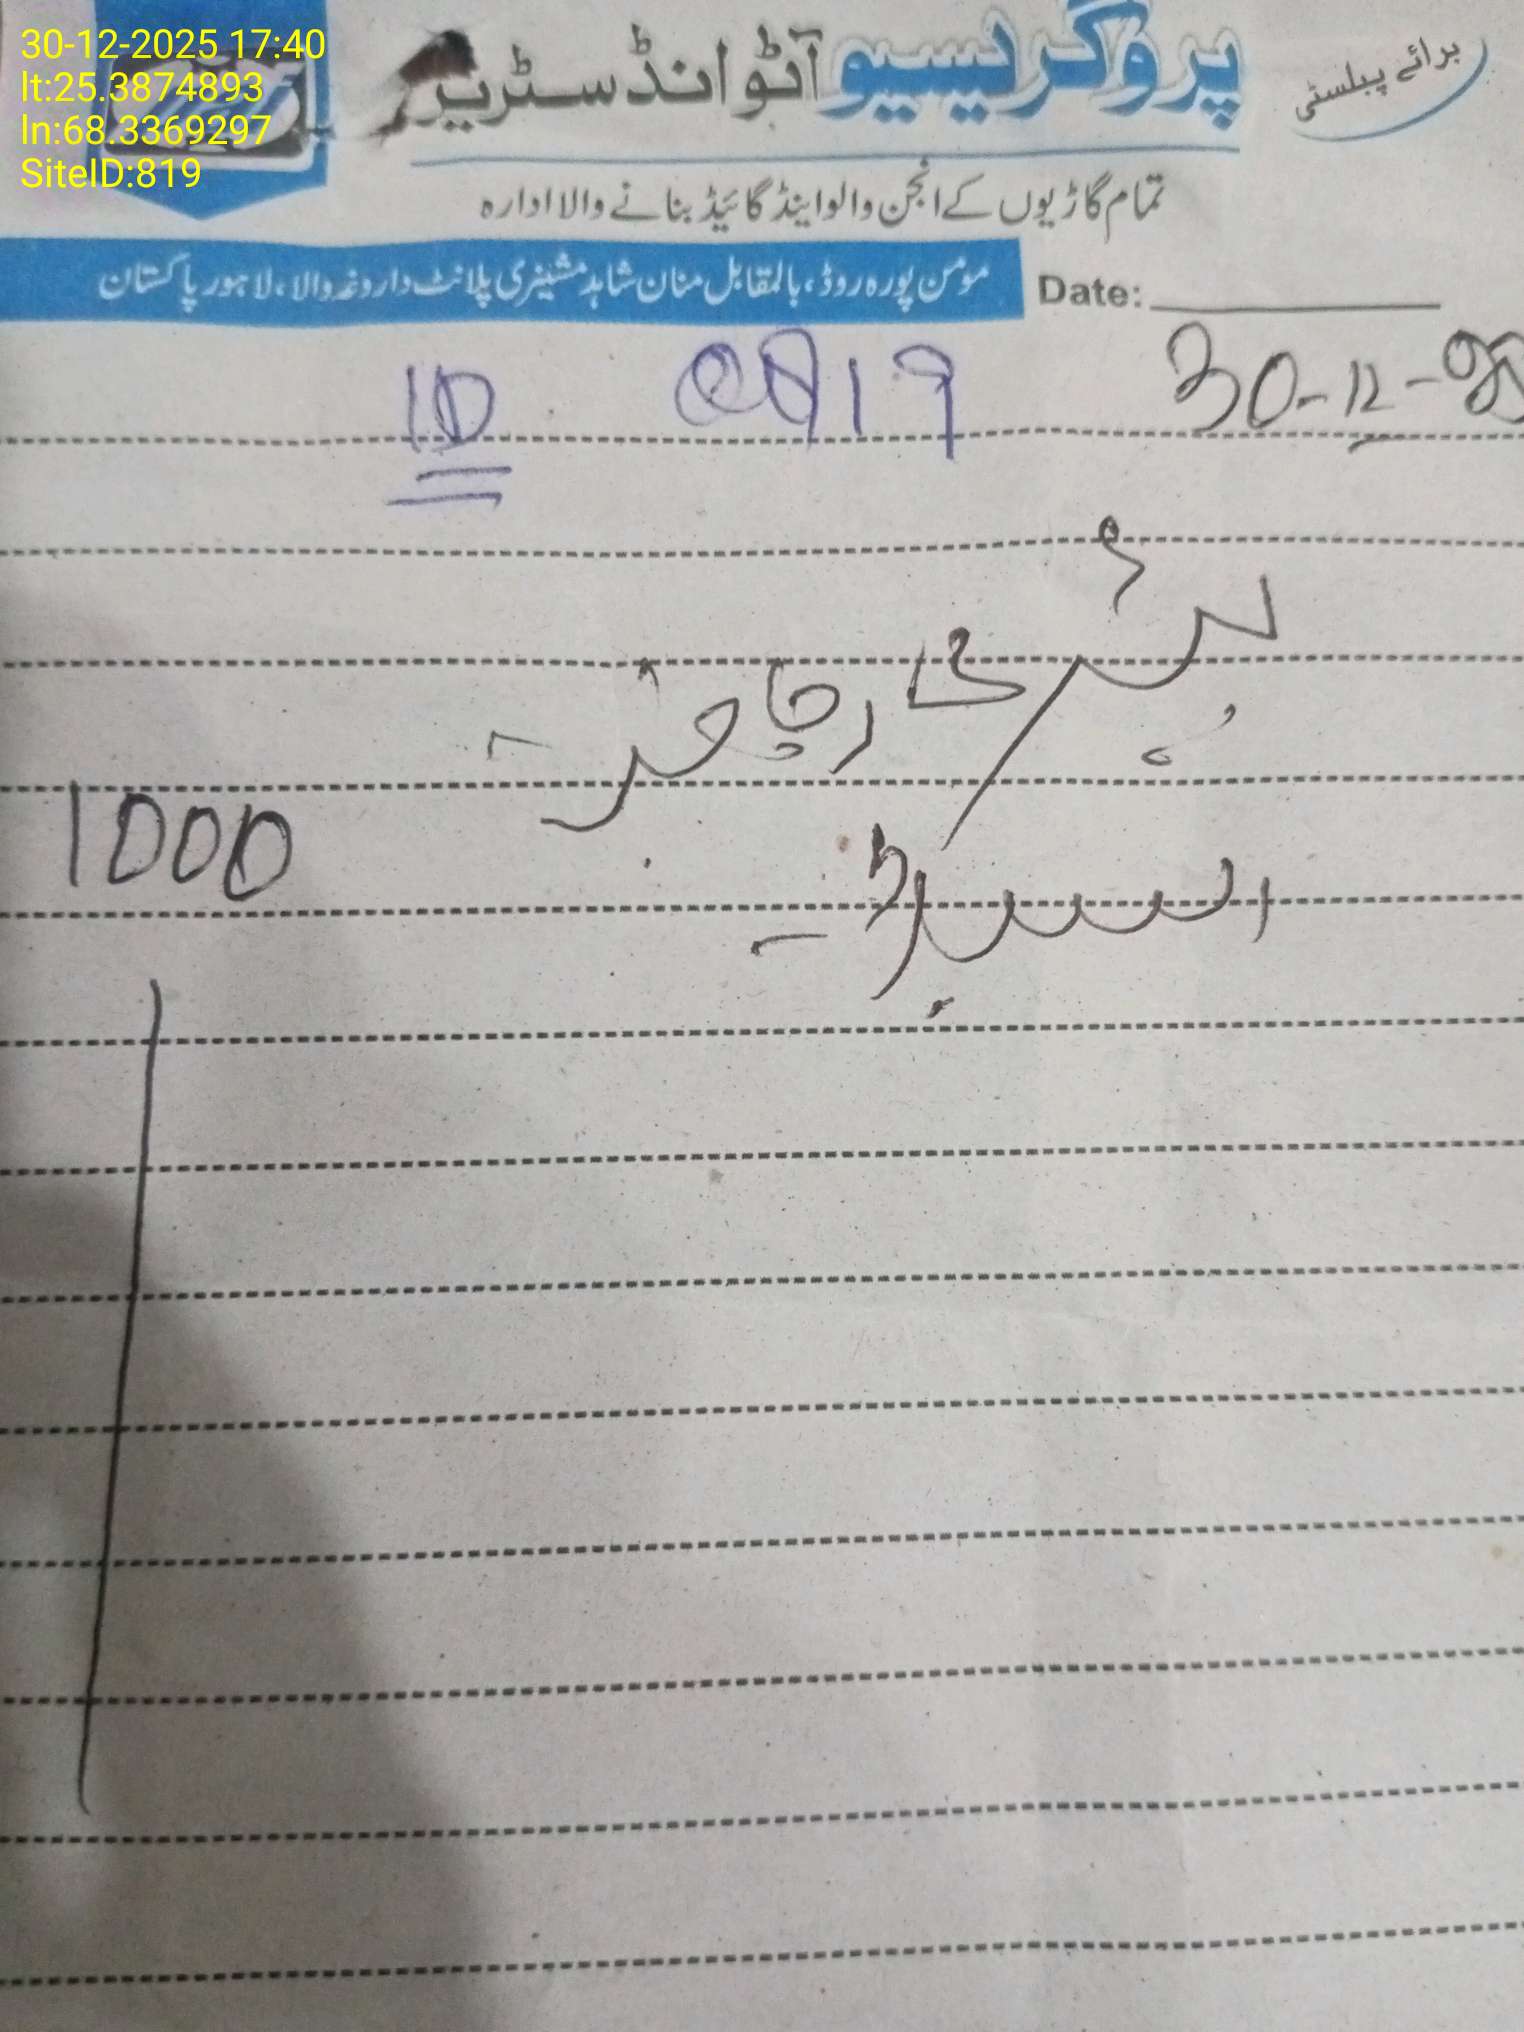 30-12-2025 17:40
lt:25.3874893
ln:68.3369297
SiteID:819
برائے پبلسٹی
پروگریسیو آٹو انڈسٹریز
تمام گاڑیوں کے انجن والو اینڈ گائیڈ بنانے والا ادارہ
مومن پورہ روڈ، بالمقابل منان شاہد مشینری پلانٹ داروغہ والا، لاہور پاکستان
Date:
ID 0819 30-12-25
بیٹری کا چارجنگ
1000